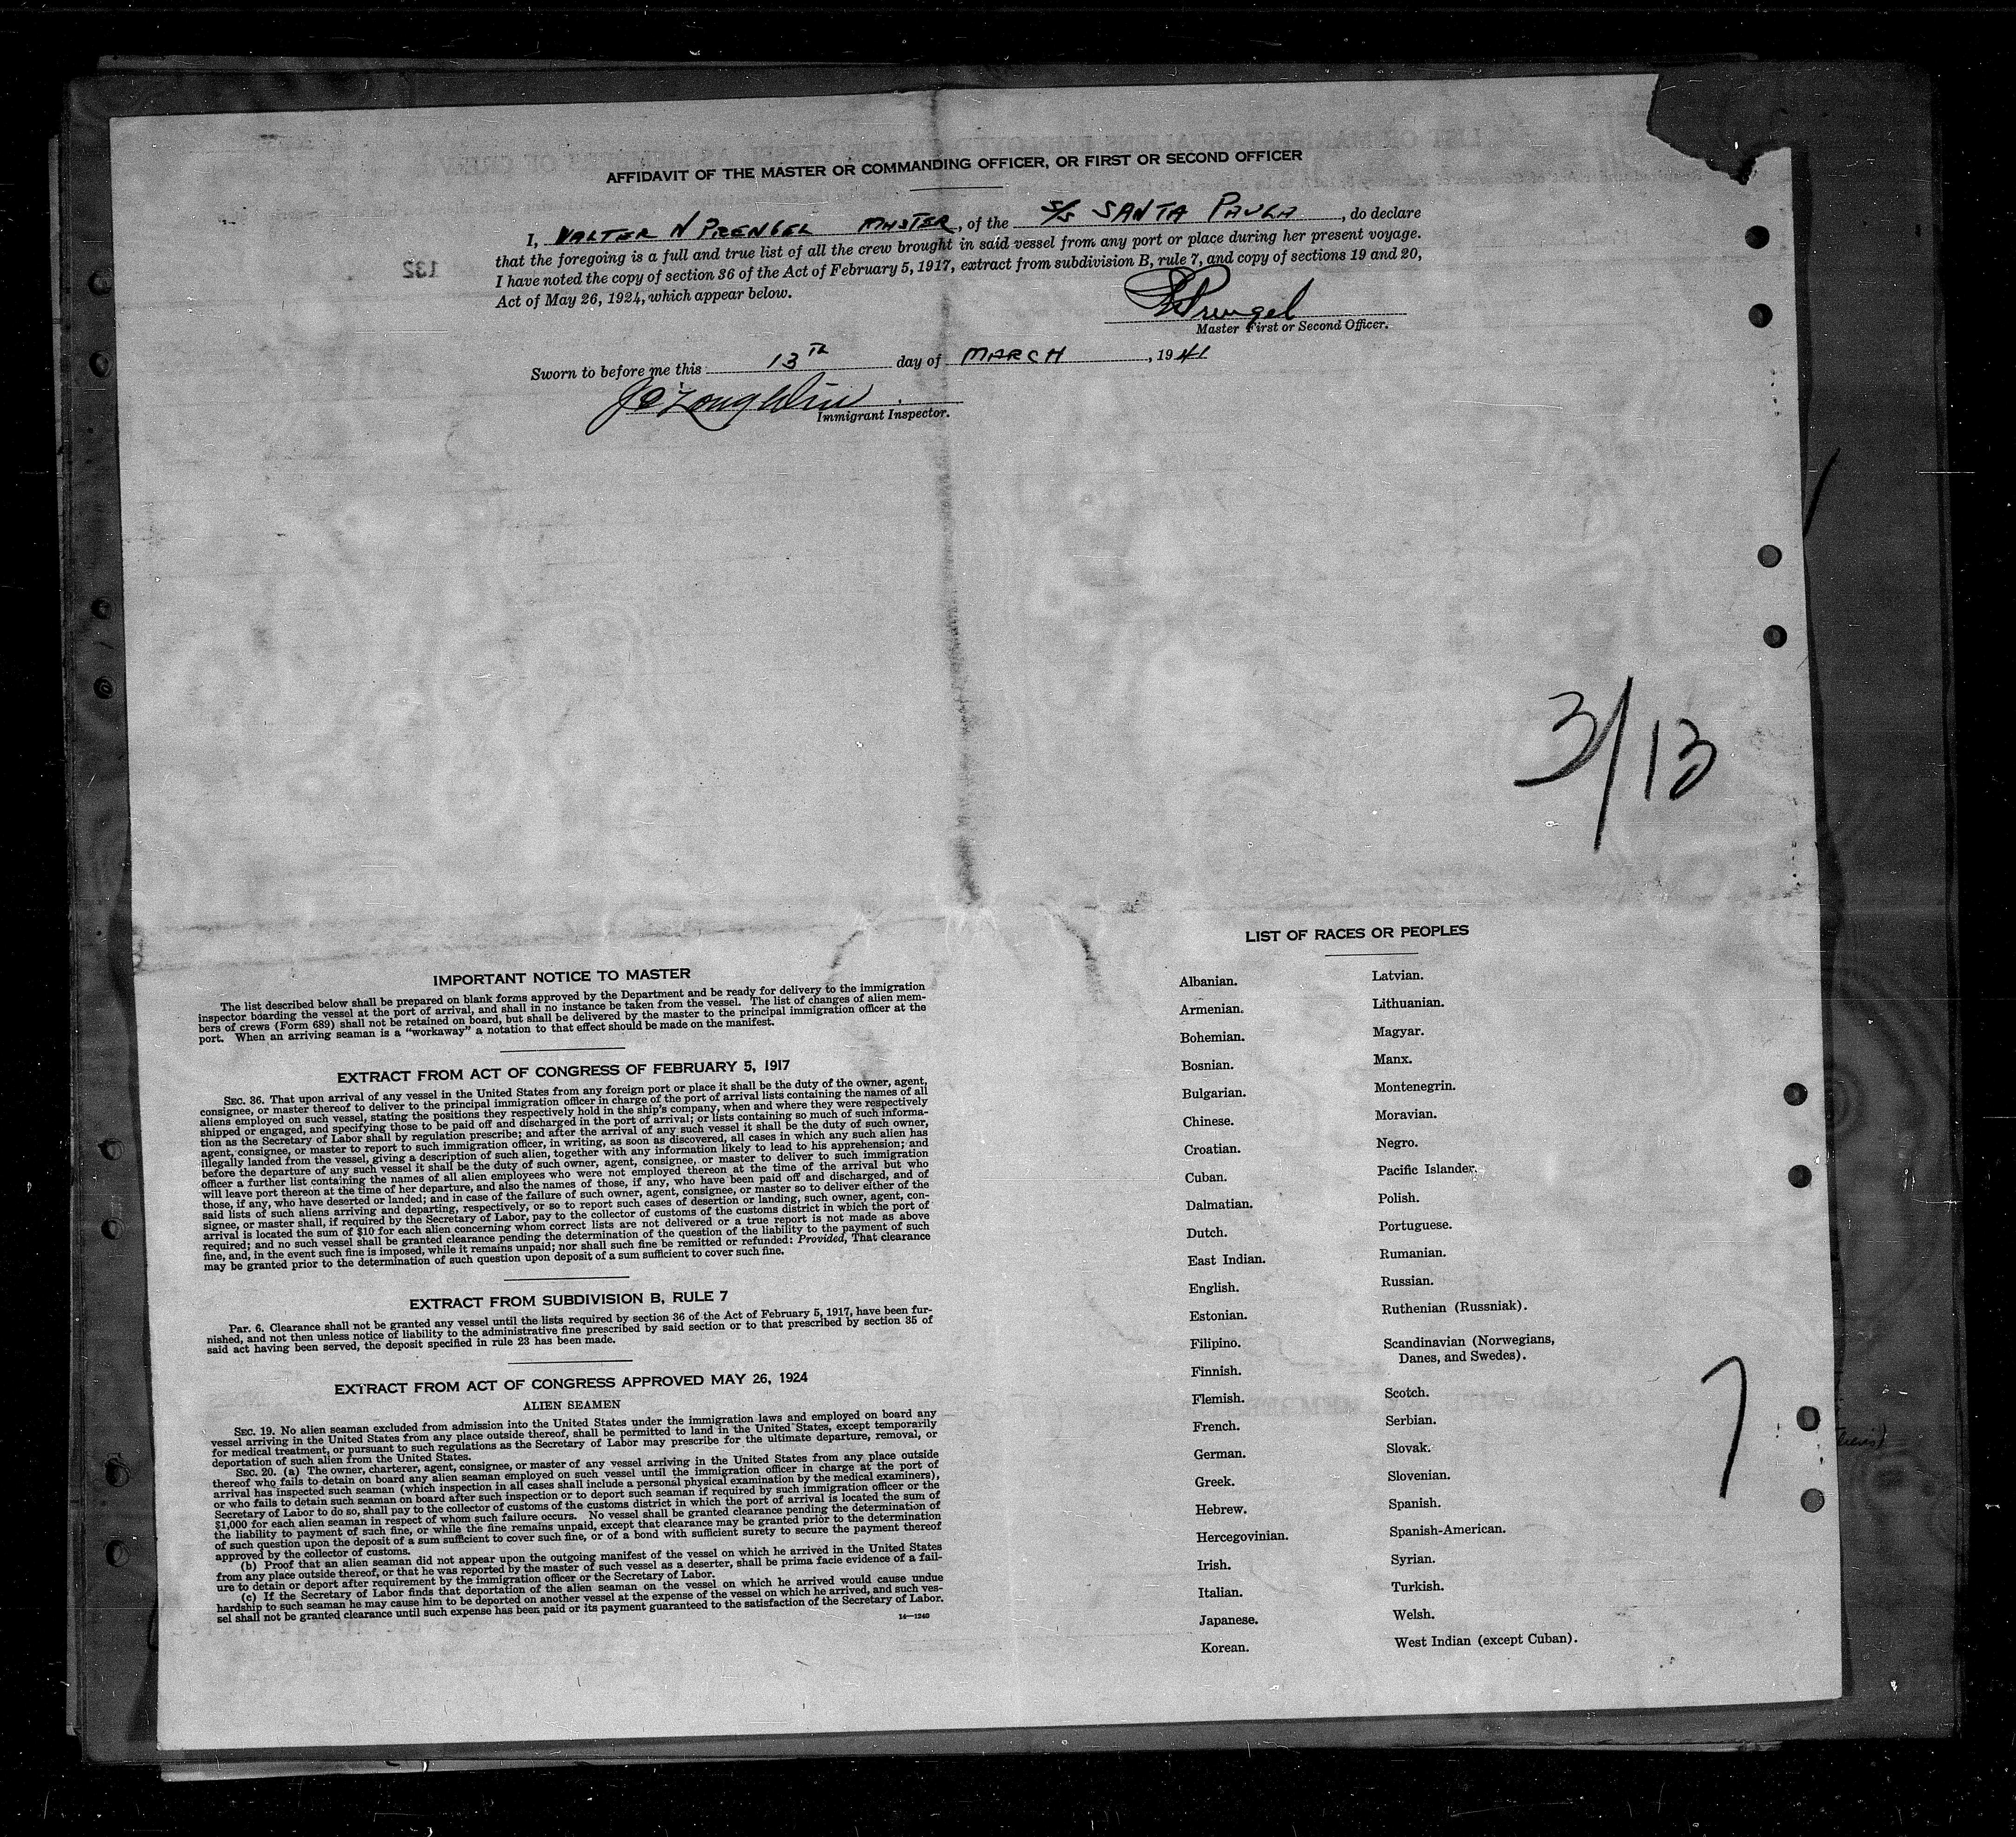 AFFIDAVIT OF THE MASTER OR COMMANDING OFFICER, OR FIRST OR SECOND OFFICER
I, WALTER N PRENGEL MASTER, of the S/S SANTA PAULA, do declare
that the foregoing is a full and true list of all the crew brought in said vessel from any port or place during her present voyage.
I have noted the copy of section 36 of the Act of February 5, 1917, extract from subdivision B, rule 7, and copy of sections 19 and 20,
Act of May 26, 1924, which appear below.
Prengel
Master First or Second Officer.
Sworn to before me this 13th day of MARCH, 1941
Immigrant Inspector.
132
3/13
IMPORTANT NOTICE TO MASTER
The list described below shall be prepared on blank forms approved by the Department and be ready for delivery to the immigration
inspector boarding the vessel at the port of arrival, and shall in no instance be taken from the vessel. The list of changes of alien mem-
bers of crews (Form 689) shall not be retained on board, but shall be delivered by the master to the principal immigration officer at the
port. When an arriving seaman is a "workaway" a notation to that effect should be made on the manifest.
EXTRACT FROM ACT OF CONGRESS OF FEBRUARY 5, 1917
SEC. 36. That upon arrival of any vessel in the United States from any foreign port or place it shall be the duty of the owner, agent,
consignee, or master thereof to deliver to the principal immigration officer in charge of the port of arrival lists containing the names of all
aliens employed on such vessel, stating the positions they respectively hold in the ship's company, when and where they were respectively
shipped or engaged, and specifying those to be paid off and discharged in the port of arrival; or lists containing so much of such informa-
tion as the Secretary of Labor shall by regulation prescribe; and after the arrival of any such vessel it shall be the duty of such owner,
agent, consignee, or master to report to such immigration officer, in writing, as soon as discovered, all cases in which any such alien has
illegally landed from the vessel, giving a description of such alien, together with any information likely to lead to his apprehension; and
before the departure of any such vessel it shall be the duty of such owner, agent, consignee, or master to deliver to such immigration
officer a further list containing the names of all alien employees who were not employed thereon at the time of the arrival but who
will leave port thereon at the time of her departure, and also the names of those, if any, who have been paid off and discharged, and of
those, if any, who have deserted or landed; and in case of the failure of such owner, agent, consignee, or master so to deliver either of the
said lists of such aliens arriving and departing, respectively, or so to report such cases of desertion or landing, such owner, agent, con-
signee, or master shall, if required by the Secretary of Labor, pay to the collector of customs of the customs district in which the port of
arrival is located the sum of $10 for each alien concerning whom correct lists are not delivered or a true report is not made as above
required; and no such vessel shall be granted clearance pending the determination of the question of the liability to the payment of such
fine, and, in the event such fine is imposed, while it remains unpaid; nor shall such fine be remitted or refunded: Provided, That clearance
may be granted prior to the determination of such question upon deposit of a sum sufficient to cover such fine.
EXTRACT FROM SUBDIVISION B, RULE 7
Par. 6. Clearance shall not be granted any vessel until the lists required by section 36 of the Act of February 5, 1917, have been fur-
nished, and not then unless notice of liability to the administrative fine prescribed by said section or to that prescribed by section 35 of
said act having been served, the deposit specified in rule 23 has been made.
EXTRACT FROM ACT OF CONGRESS APPROVED MAY 26, 1924
ALIEN SEAMEN
SEC. 19. No alien seaman excluded from admission into the United States under the immigration laws and employed on board any
vessel arriving in the United States from any place outside thereof, shall be permitted to land in the United States, except temporarily
for medical treatment, or pursuant to such regulations as the Secretary of Labor may prescribe for the ultimate departure, removal, or
deportation of such alien from the United States.
SEC. 20. (a) The owner, charterer, agent, consignee, or master of any vessel arriving in the United States from any place outside
thereof who fails to detain on board any alien seaman employed on such vessel until the immigration officer in charge at the port of
arrival has inspected such seaman (which inspection in all cases shall include a personal physical examination by the medical examiners),
or who fails to detain such seaman on board after such inspection or to deport such seaman if required by such immigration officer or the
Secretary of Labor to do so, shall pay to the collector of customs of the customs district in which the port of arrival is located the sum of
$1,000 for each alien seaman in respect of whom such failure occurs. No vessel shall be granted clearance pending the determination of
the liability to payment of such fine, or while the fine remains unpaid, except that clearance may be granted prior to the determination
of such question upon the deposit of a sum sufficient to cover such fine, or of a bond with sufficient surety to secure the payment thereof
approved by the collector of customs.
(b) Proof that an alien seaman did not appear upon the outgoing manifest of the vessel on which he arrived in the United States
from any place outside thereof, or that he was reported by the master of such vessel as a deserter, shall be prima facie evidence of a fail-
ure to detain or deport after requirement by the immigration officer or the Secretary of Labor.
(c) If the Secretary of Labor finds that deportation of the alien seaman on the vessel on which he arrived would cause undue
hardship to such seaman he may cause him to be deported on another vessel at the expense of the vessel on which he arrived, and such ves-
sel shall not be granted clearance until such expense has been paid or its payment guaranteed to the satisfaction of the Secretary of Labor.
14—1240
LIST OF RACES OR PEOPLES
Albanian.
Armenian.
Bohemian.
Bosnian.
Bulgarian.
Chinese.
Croatian.
Cuban.
Dalmatian.
Dutch.
East Indian.
English.
Estonian.
Filipino.
Finnish.
Flemish.
French.
German.
Greek.
Hebrew.
Hercegovinian.
Irish.
Italian.
Japanese.
Korean.
Latvian.
Lithuanian.
Magyar.
Manx.
Montenegrin.
Moravian.
Negro.
Pacific Islander.
Polish.
Portuguese.
Rumanian.
Russian.
Ruthenian (Russniak).
Scandinavian (Norwegians,
Danes, and Swedes).
Scotch.
Serbian.
Slovak.
Slovenian.
Spanish.
Spanish-American.
Syrian.
Turkish.
Welsh.
West Indian (except Cuban).
7